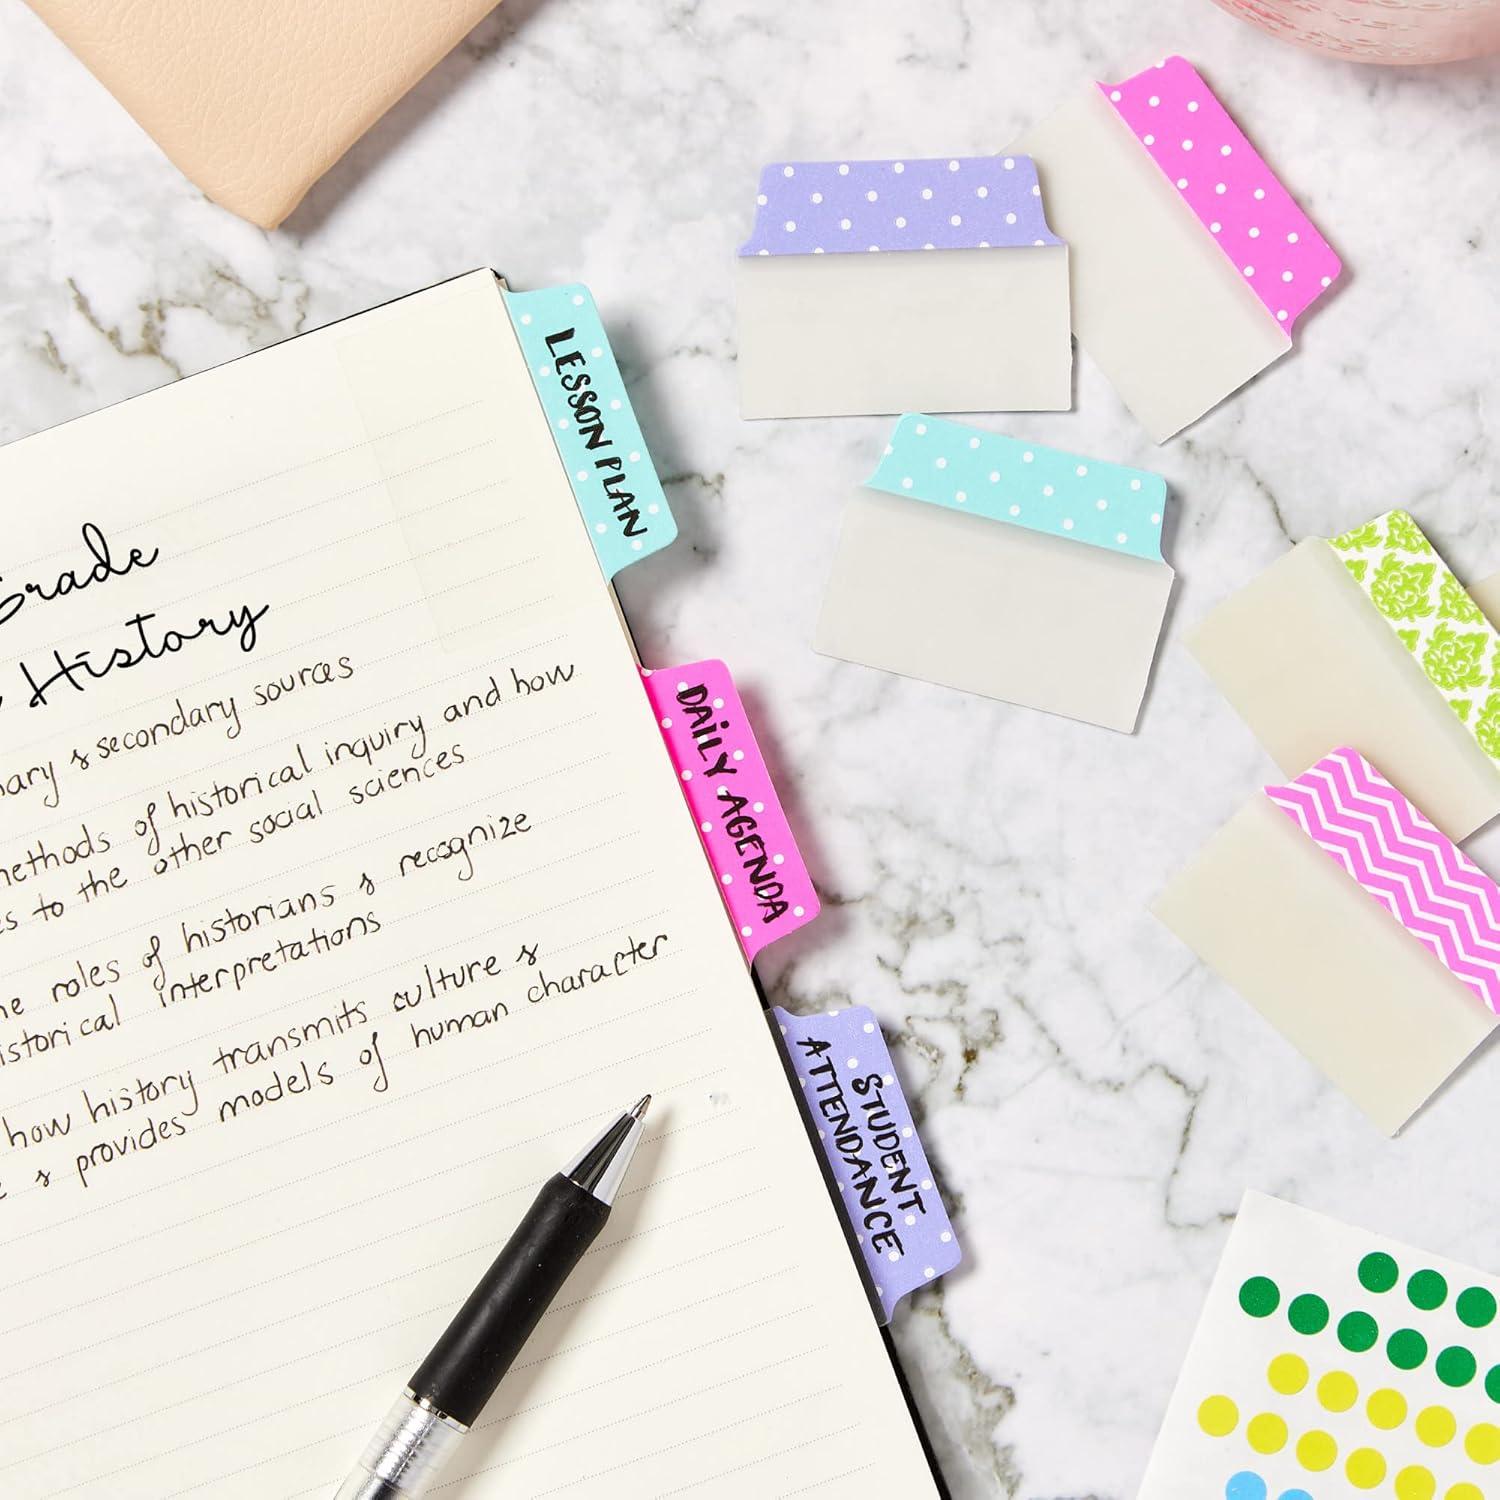 Grade
History
& secondary sources
methods of historical inquiry and how
to the other social sciences
roles of historians & recognize
historical interpretations
how history transmits culture &
& provides models of human character
LESSON PLAN
DAILY AGENDA
STUDENT
ATTENDANCE